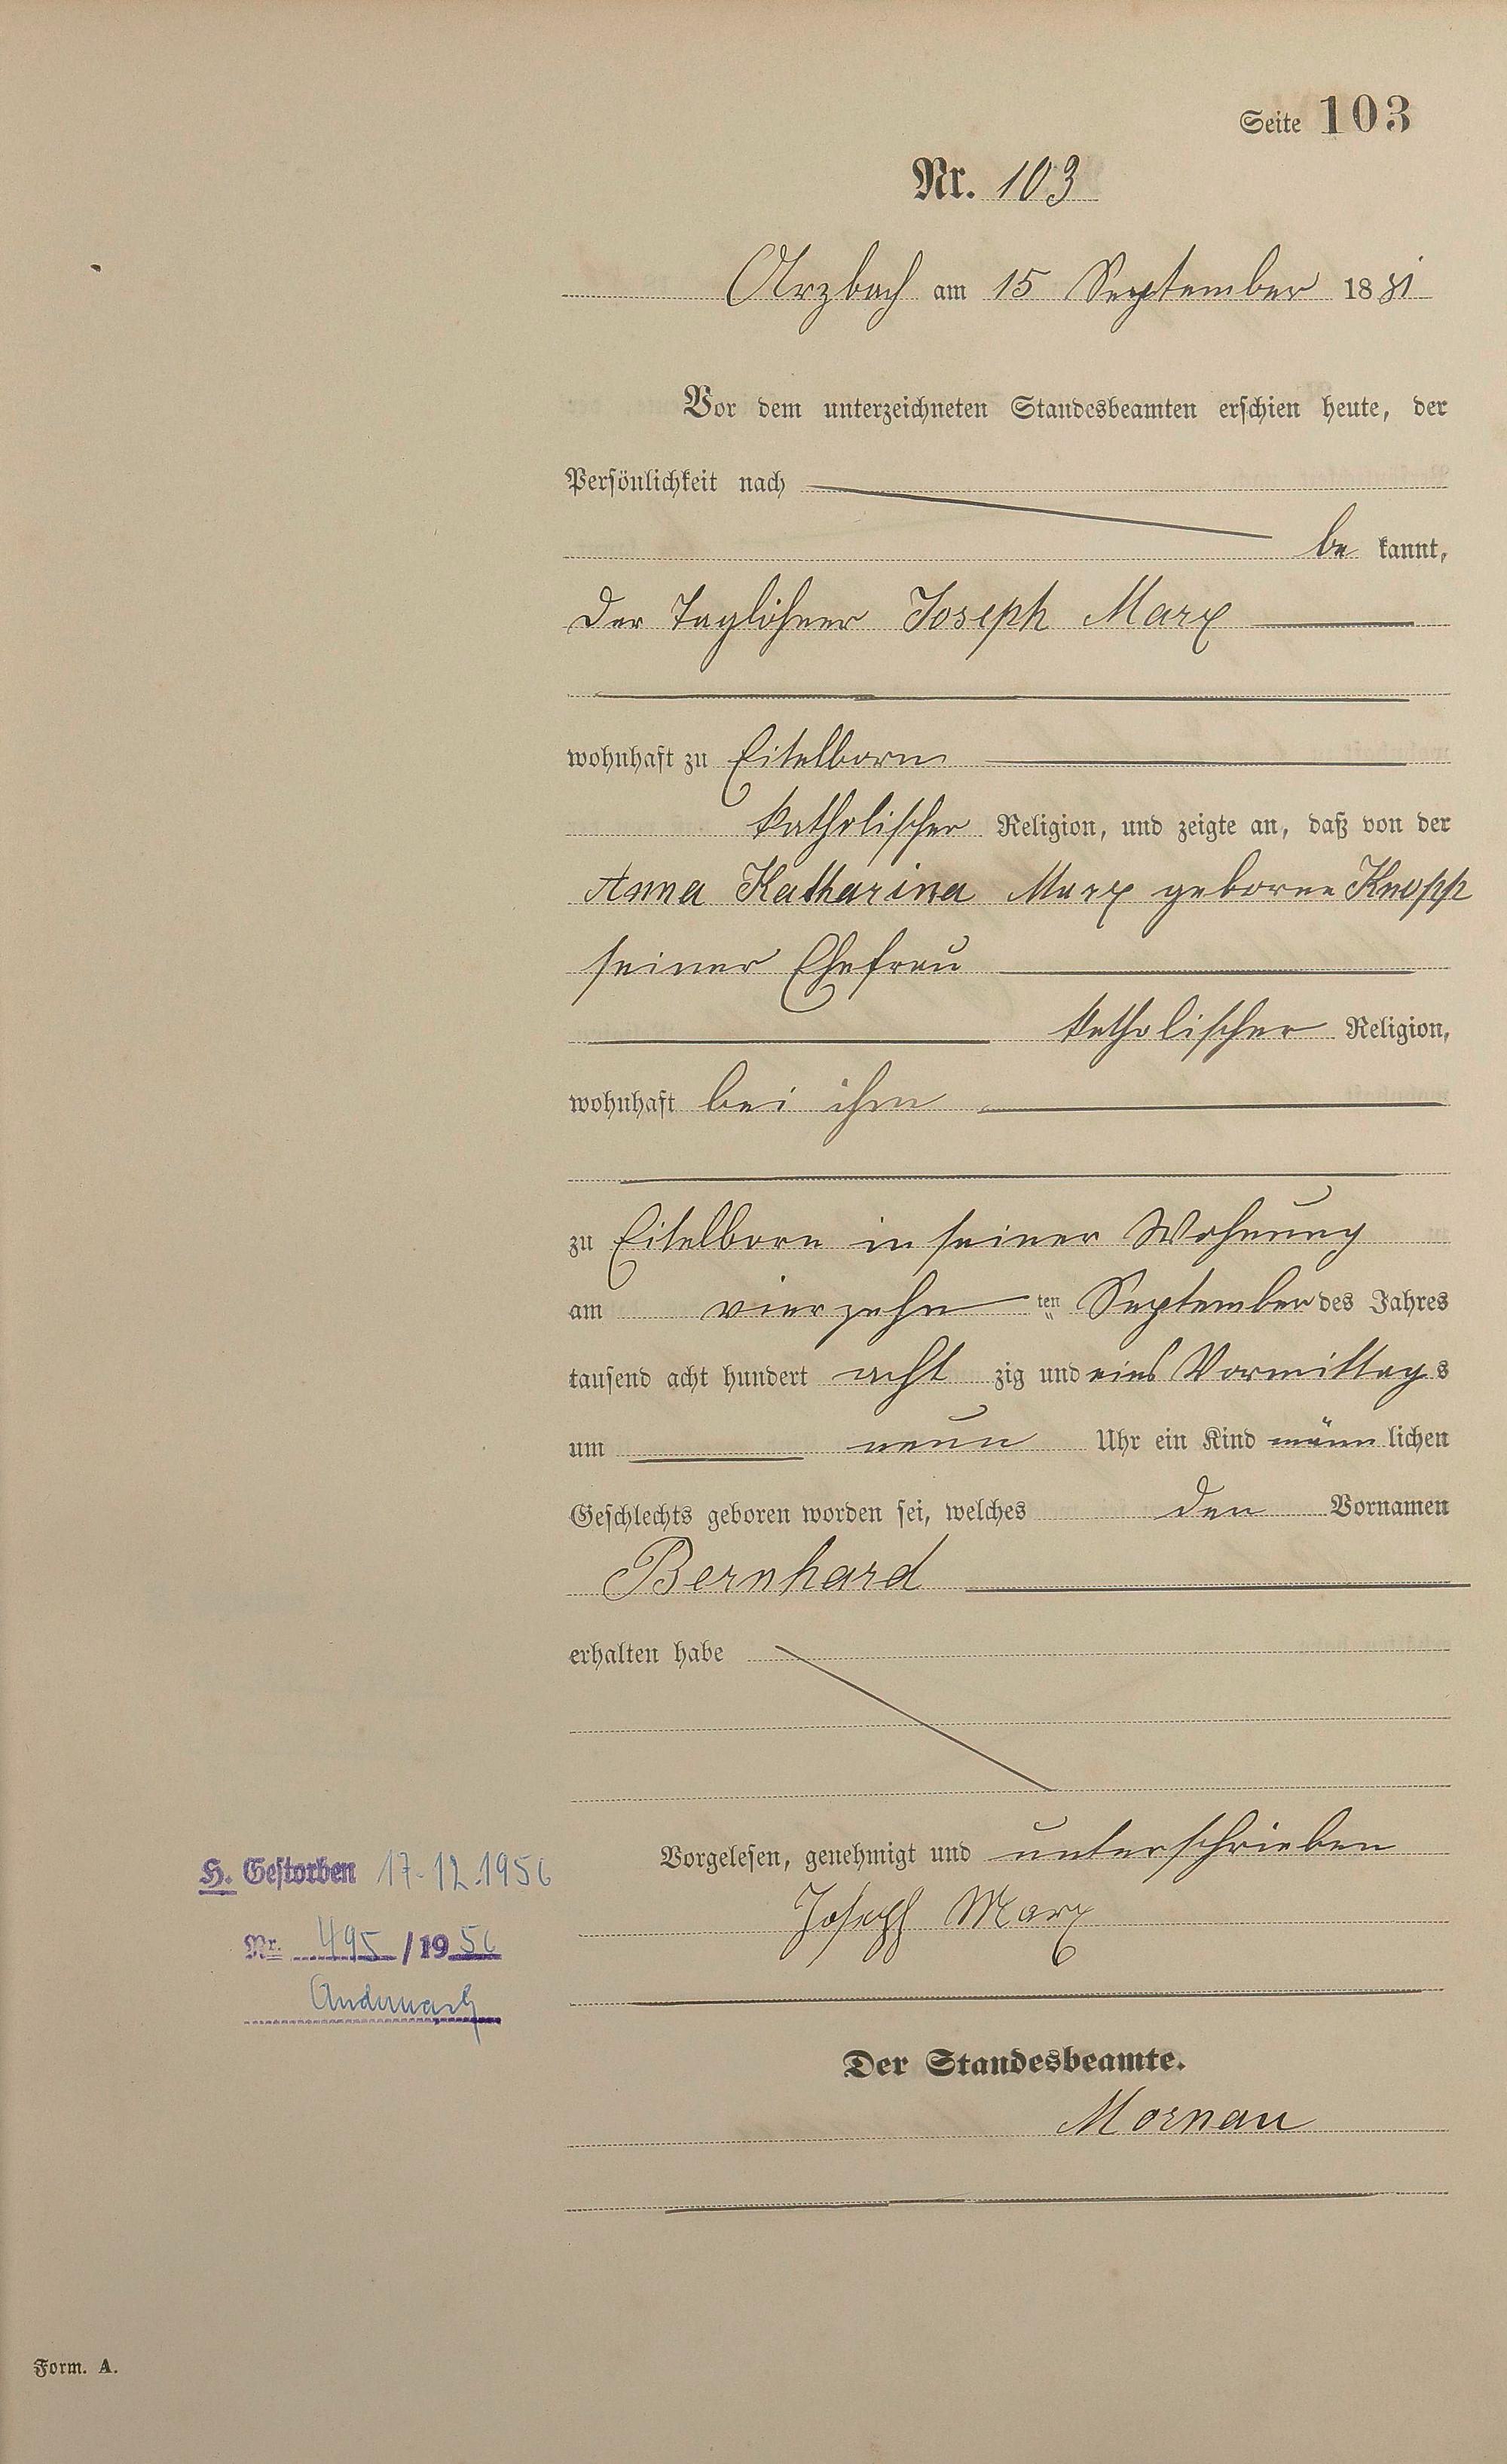 Seite 103
Nr. 103
Arzbach am 15 September 1881
Vor dem unterzeichneten Standesbeamten erschien heute, der
Persönlichkeit nach
be kannt,
der Taglöhner Joseph Marx
wohnhaft zu Eitelborn
katholischer Religion, und zeigte an, daß von der
Anna Katharina Marx geborne Knopp
seiner Ehefrau
katholischer Religion,
wohnhaft bei ihm
zu Eitelborn in seiner Wohnung
am vierzehn ten September des Jahres
tausend acht hundert acht zig und eins Vormittags
um neun Uhr ein Kind männ lichen
Geschlechts geboren worden sei, welches den Vornamen
Bernhard
erhalten habe
Vorgelesen, genehmigt und unterschrieben
Joseph Marx
H. Gestorben 17.12.1956
Nr. 495/1956
Andernach
Der Standesbeamte.
Mornau
Form. A.